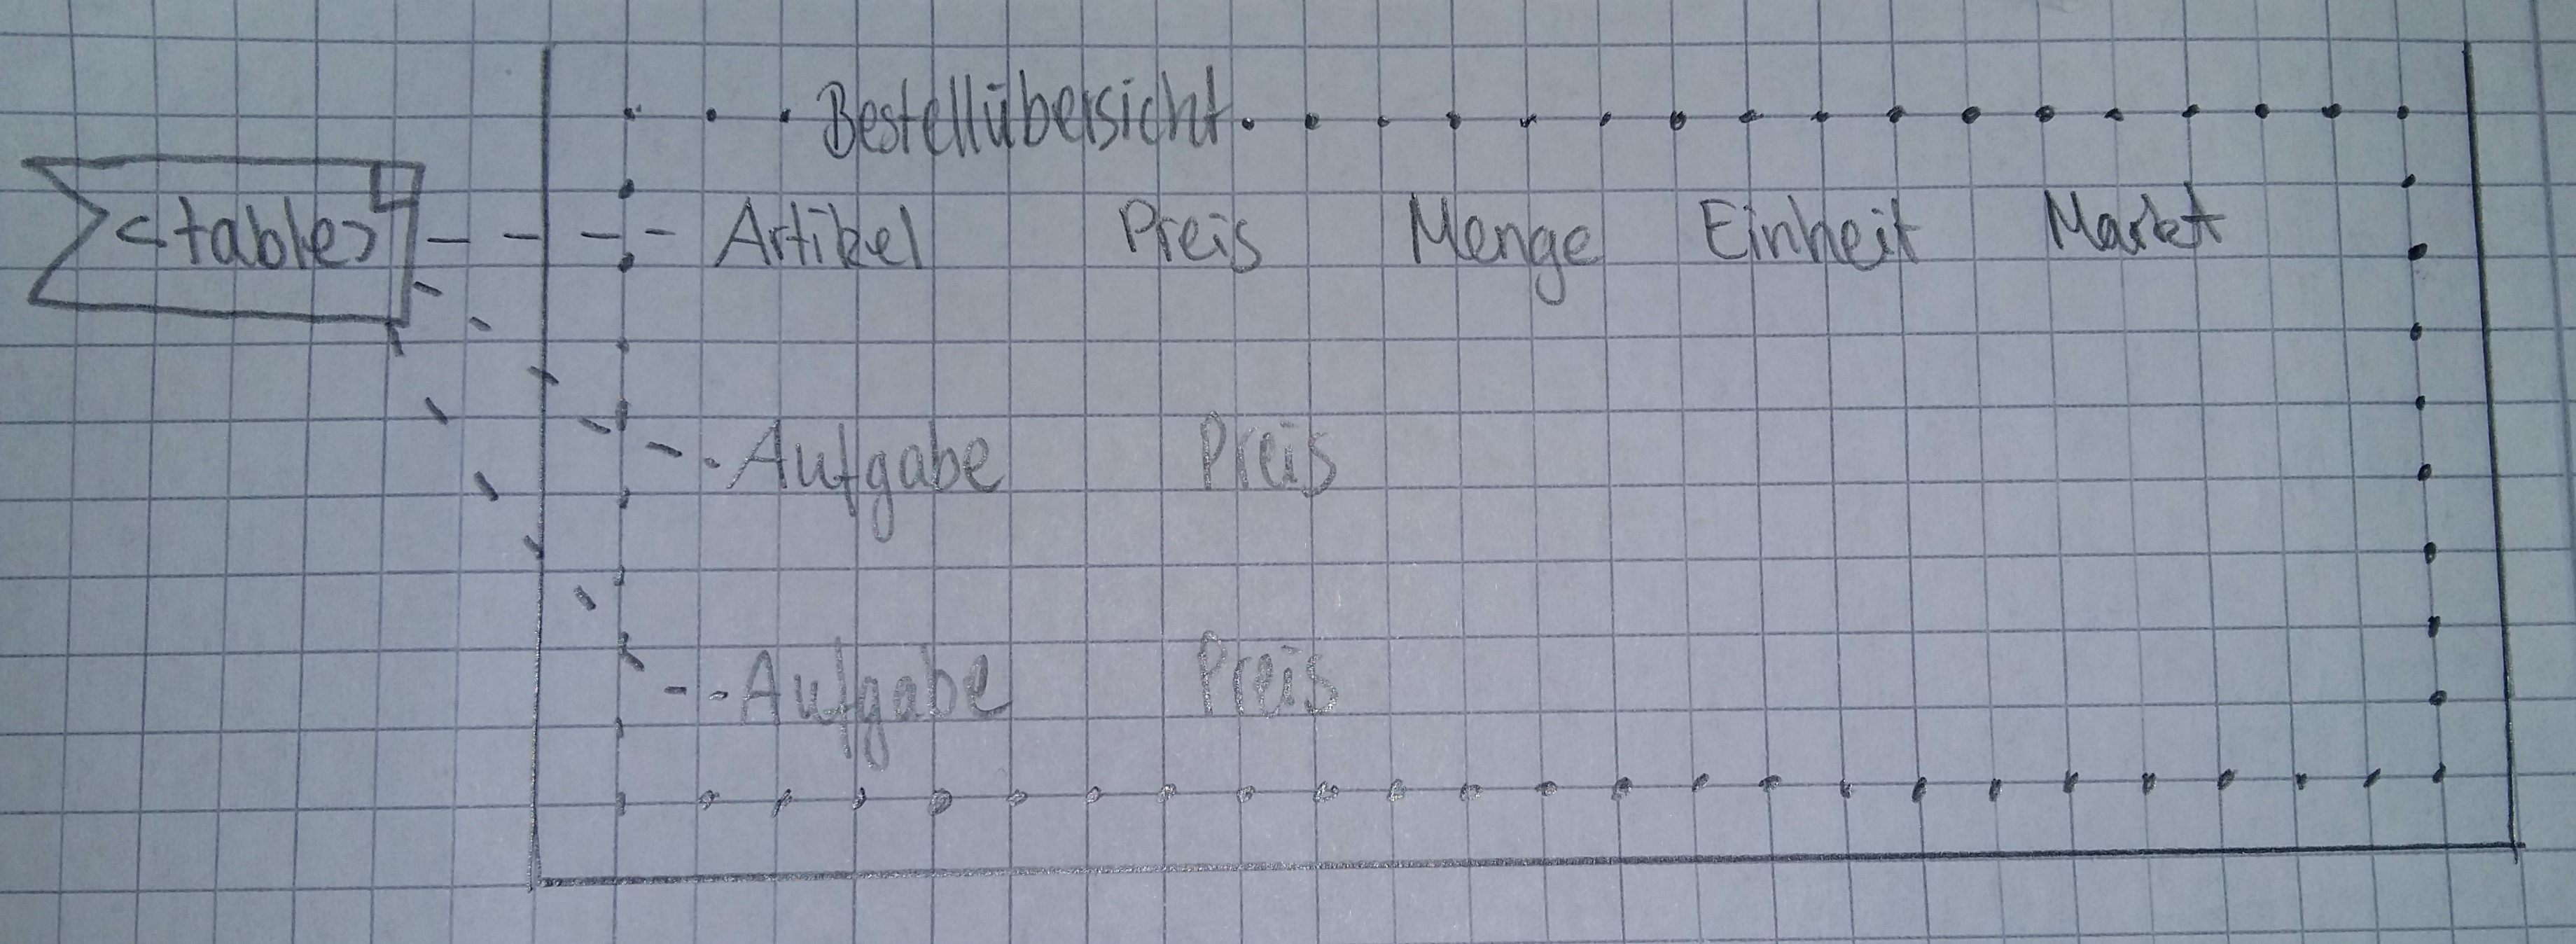 Bestellübersicht
<table>
Artikel Preis Menge Einheit Markt
Aufgabe Preis
Aufgabe Preis